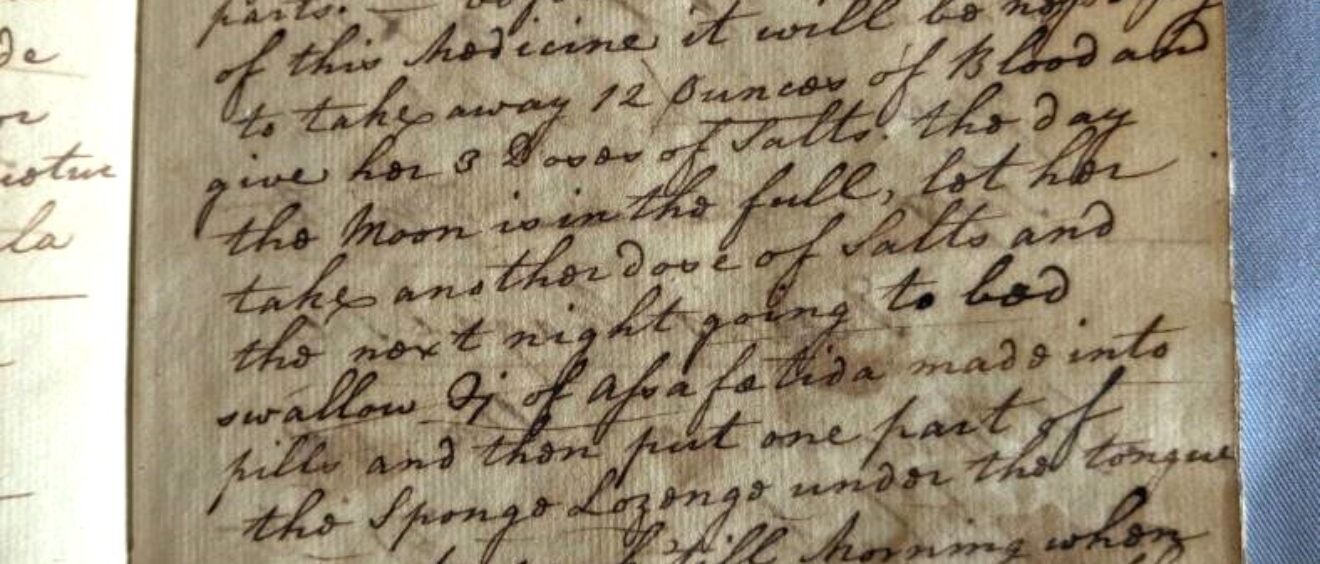 de
or
la
parts. —
of this Medicine it will be
to take away 12 Ounces of Blood and
give her 3 Doses of Salts. the day
the Moon is in the full, let her
take another dose of Salts and
the next night going to bed
swallow ℈j of Assafœtida made into
pills and then put one part of
the Sponge Lozenge under the tongue
till Morning when